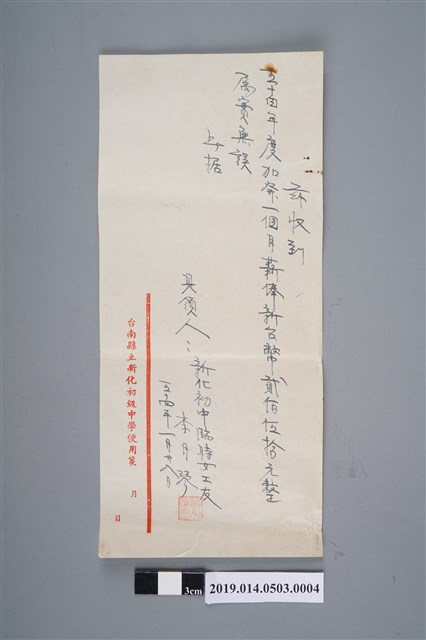 茲收到
五十四年度加發一個月薪俸新台幣貳佰伍拾元整
屬實無誤
上據
具領人：新化初中臨時女工友
李月琴
五四年一月廿八日
台南縣立新化初級中學便用箋
月
日
3cm
2019.014.0503.0004